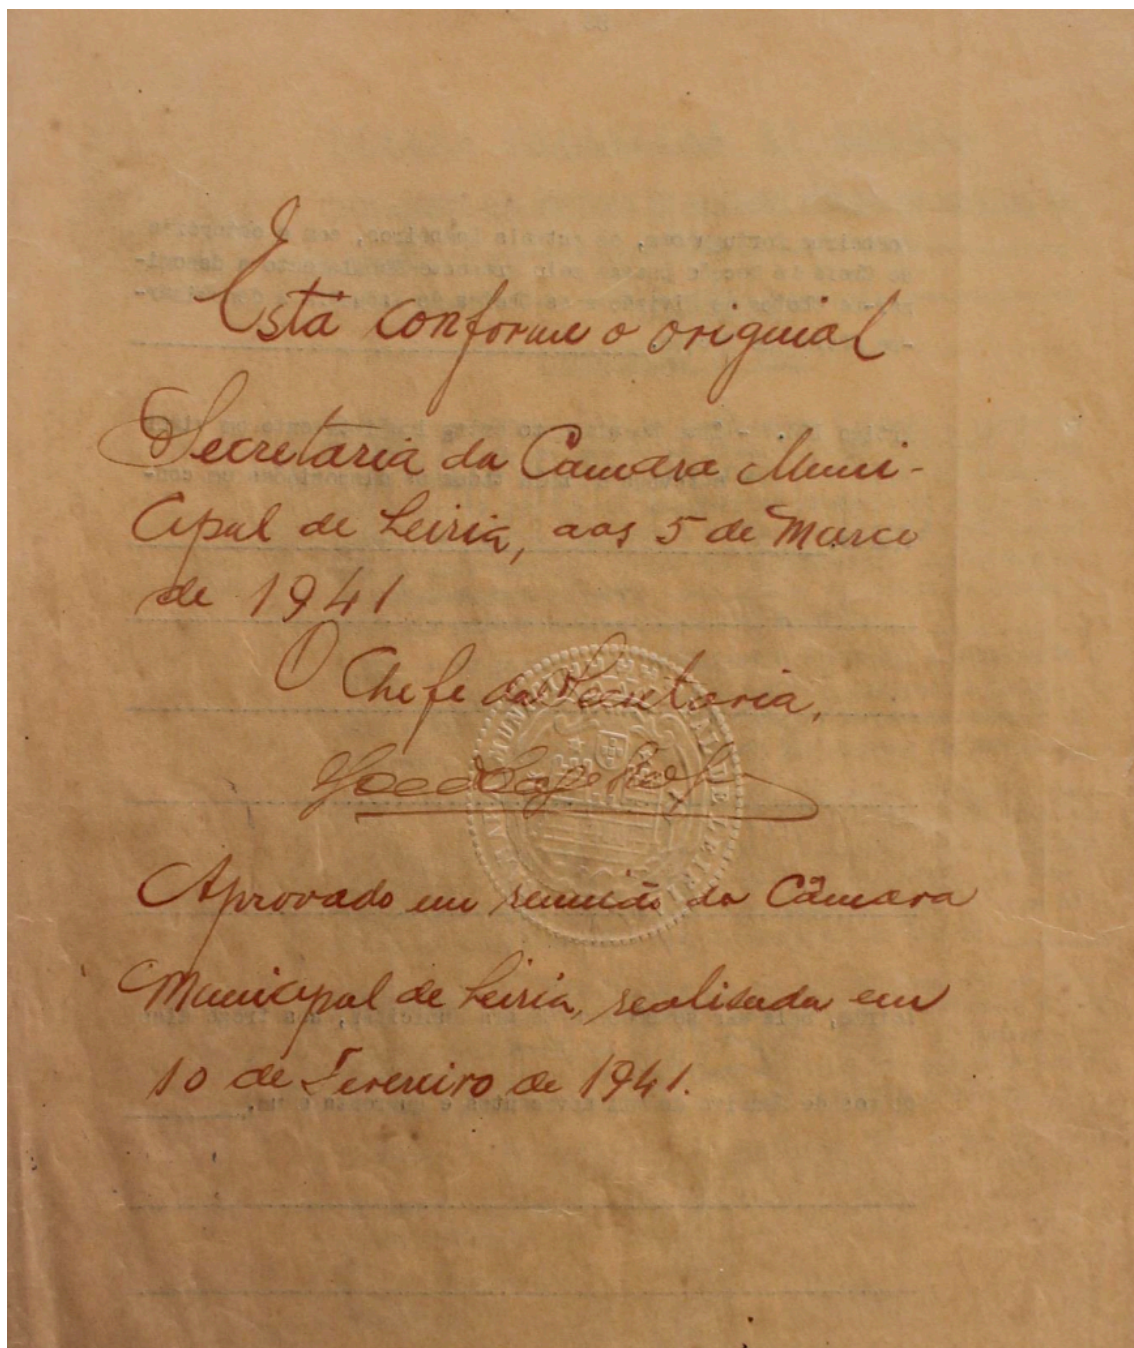 Está conforme o original
Secretaria da Camara Muni-
cipal de Leiria, aos 5 de Março
de 1941
O Chefe da Secretaria,
Aprovado em reunião da Câmara
Municipal de Leiria, realisada em
10 de Fevereiro de 1941.